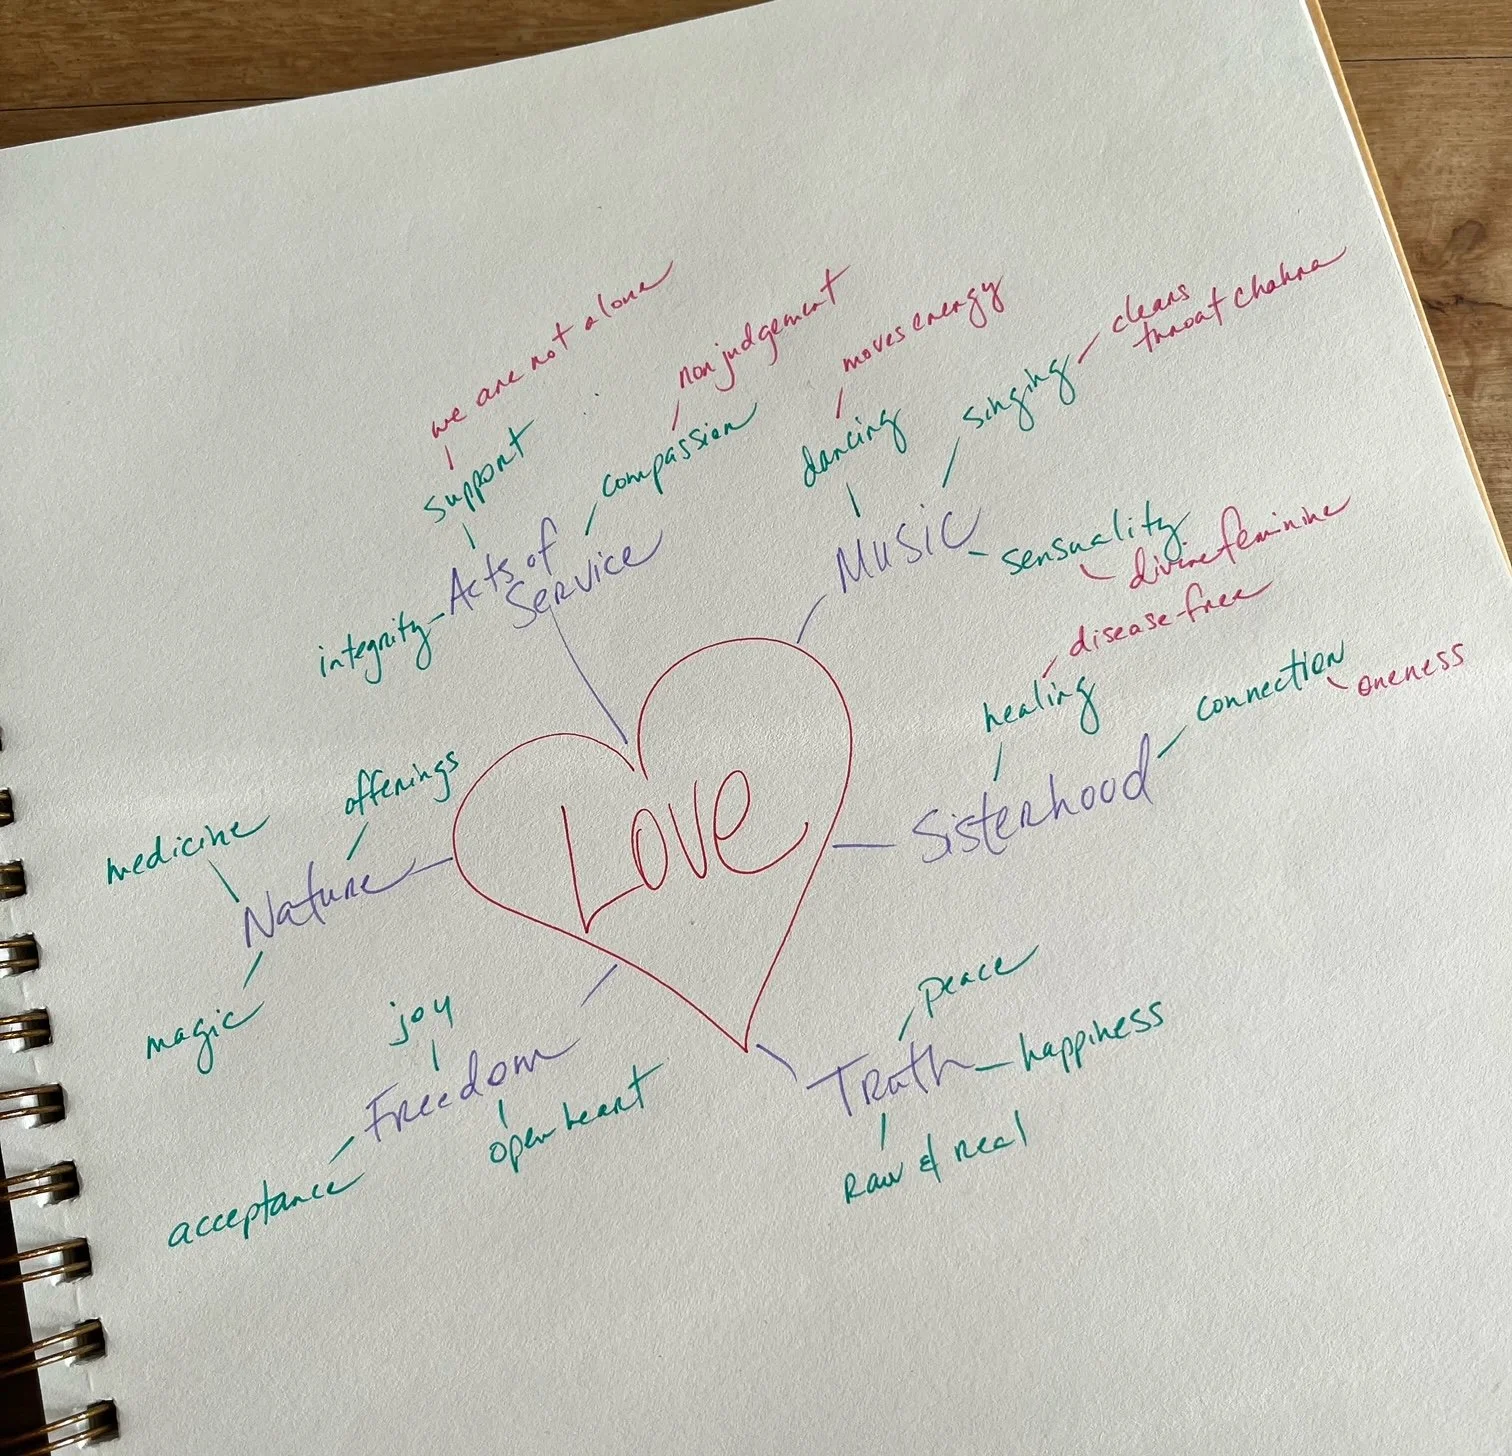 we are not alone
support
non judgement
compassion
integrity
Acts of
Service
moves energy
dancing
cleans
throat chakra
singing
Music
sensuality
divine feminine
disease-free
healing
connection
oneness
Sisterhood
LOVE
offerings
medicine
Nature
magic
joy
Freedom
open heart
acceptance
peace
Truth
happiness
Raw & Real